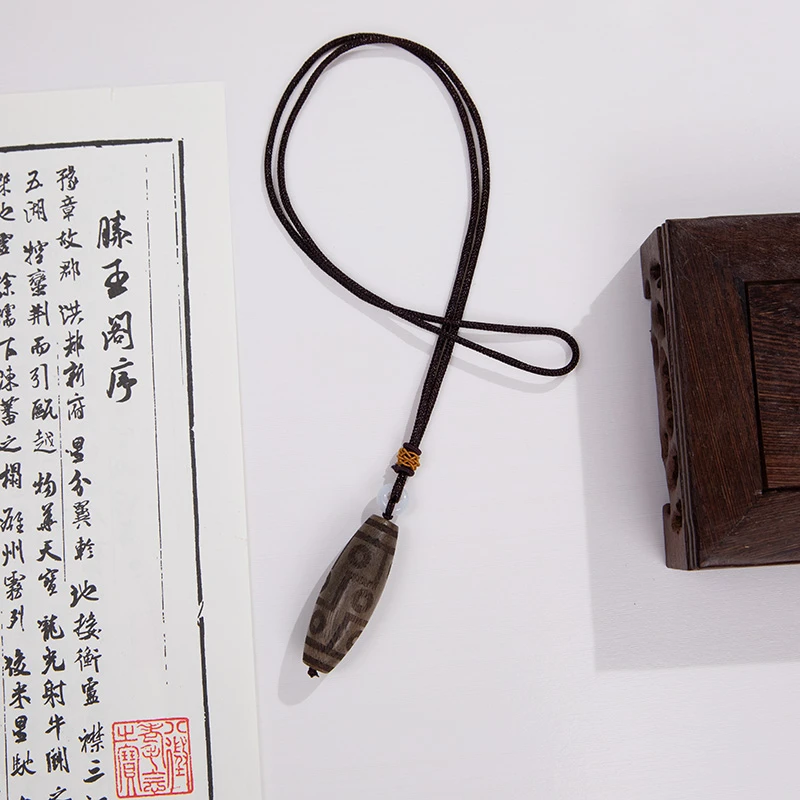 滕王阁序
豫章故郡洪都新府星分翼軫地接衡廬襟三
五湖控蠻荊而引甌越物華天寶龍光射牛鬥
地靈徐孺下陳蕃之榻雄州霧列俊采星馳
八徵耄念之寶